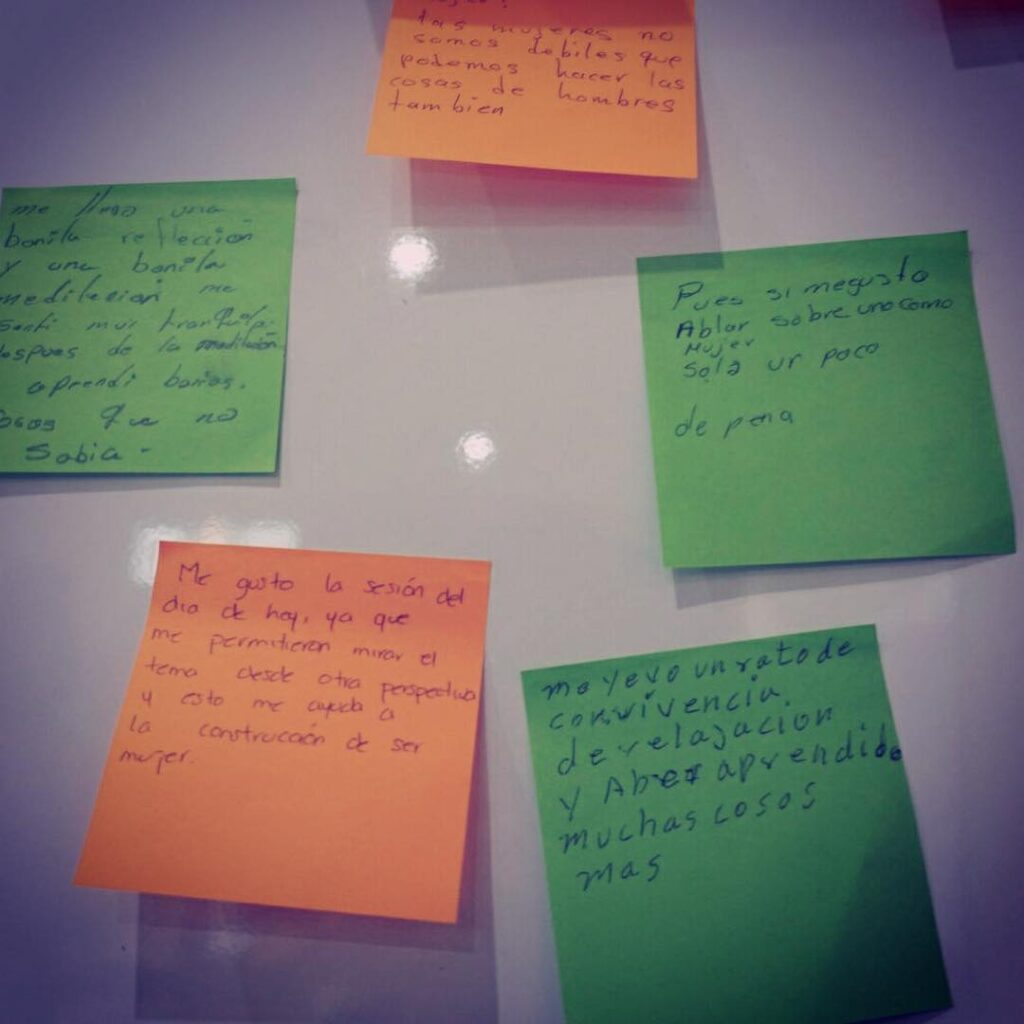 las mujeres no
somos debiles que
podemos hacer las
cosas de hombres
tambien
me llevo una
bonita reflección
y una bonita
meditacion me
senti muy tranquila
despues de la meditación
aprendi barias.
cosas que no
sabia -
Pues si megusto
Ablar sobre unocomo
Mujer
Sola un poco
de pena
Me gusto la sesión del
dia de hoy, ya que
me permitieron mirar el
tema desde otra perspectiva
y esto me ayuda a
la construcción de ser
mujer.
me yevo un rato de
convivencia.
de relajacion
y Aber aprendido
muchas cosas
mas